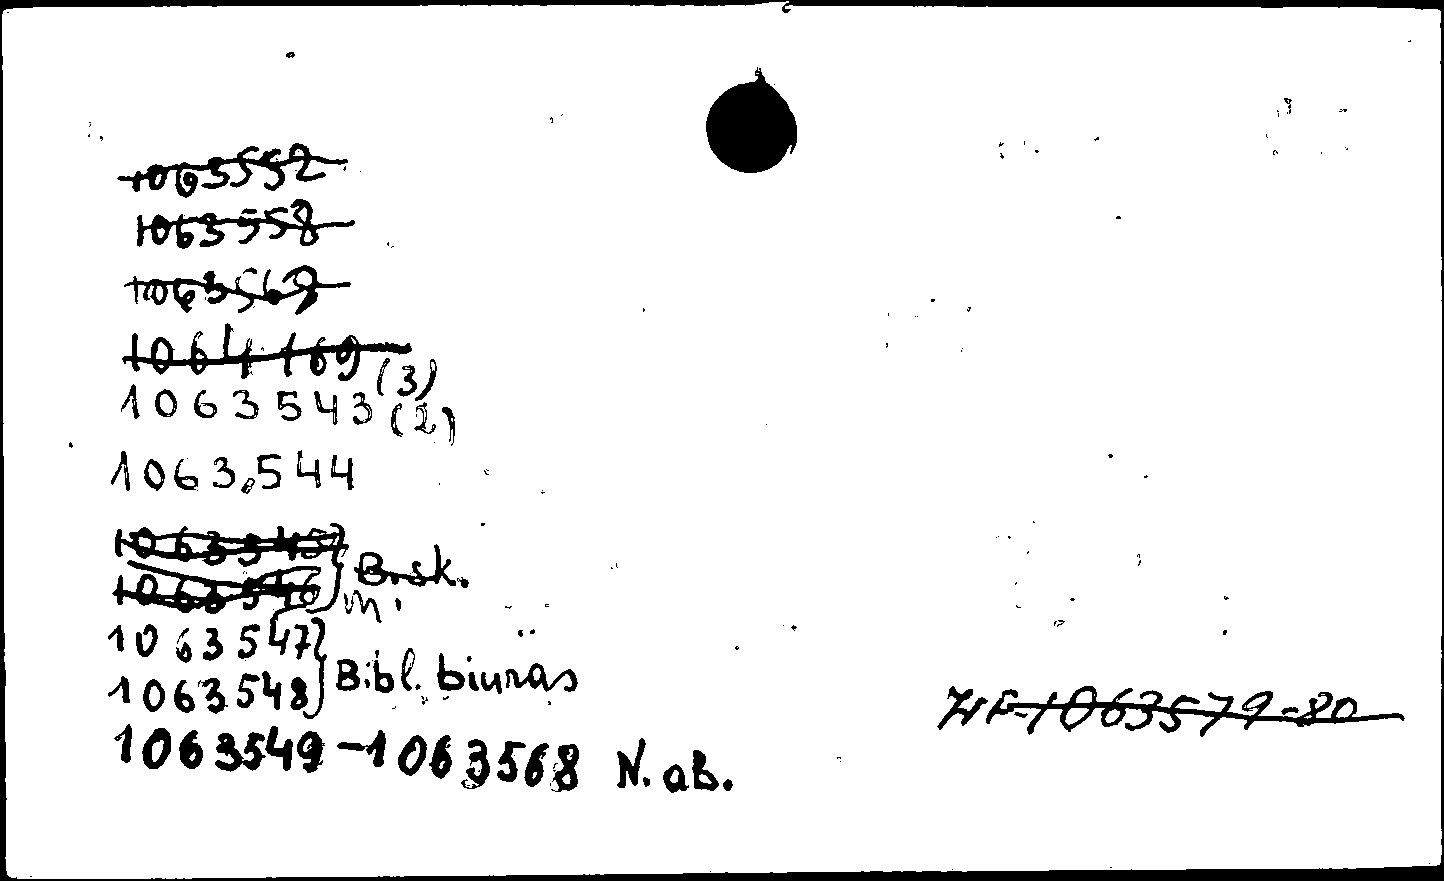 1063552
1063558
1063569
1064169 (3)
1063543 (2)
1063544
1063545
1063546 } B.sk.
m.
1063547
1063548 } Bibl. biuras
HF-1063579-80
1063549-1063568 N. ab.